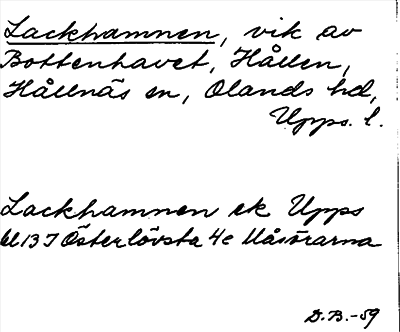 Lackhamnen, vik av
Bottenhavet, Hållen,
Hållnäs sn, Olands hd,
Upps. l.
Lackhamnen ek Upps
bl 13 J Österlövsta 4e Måsörarna
D.B.-59